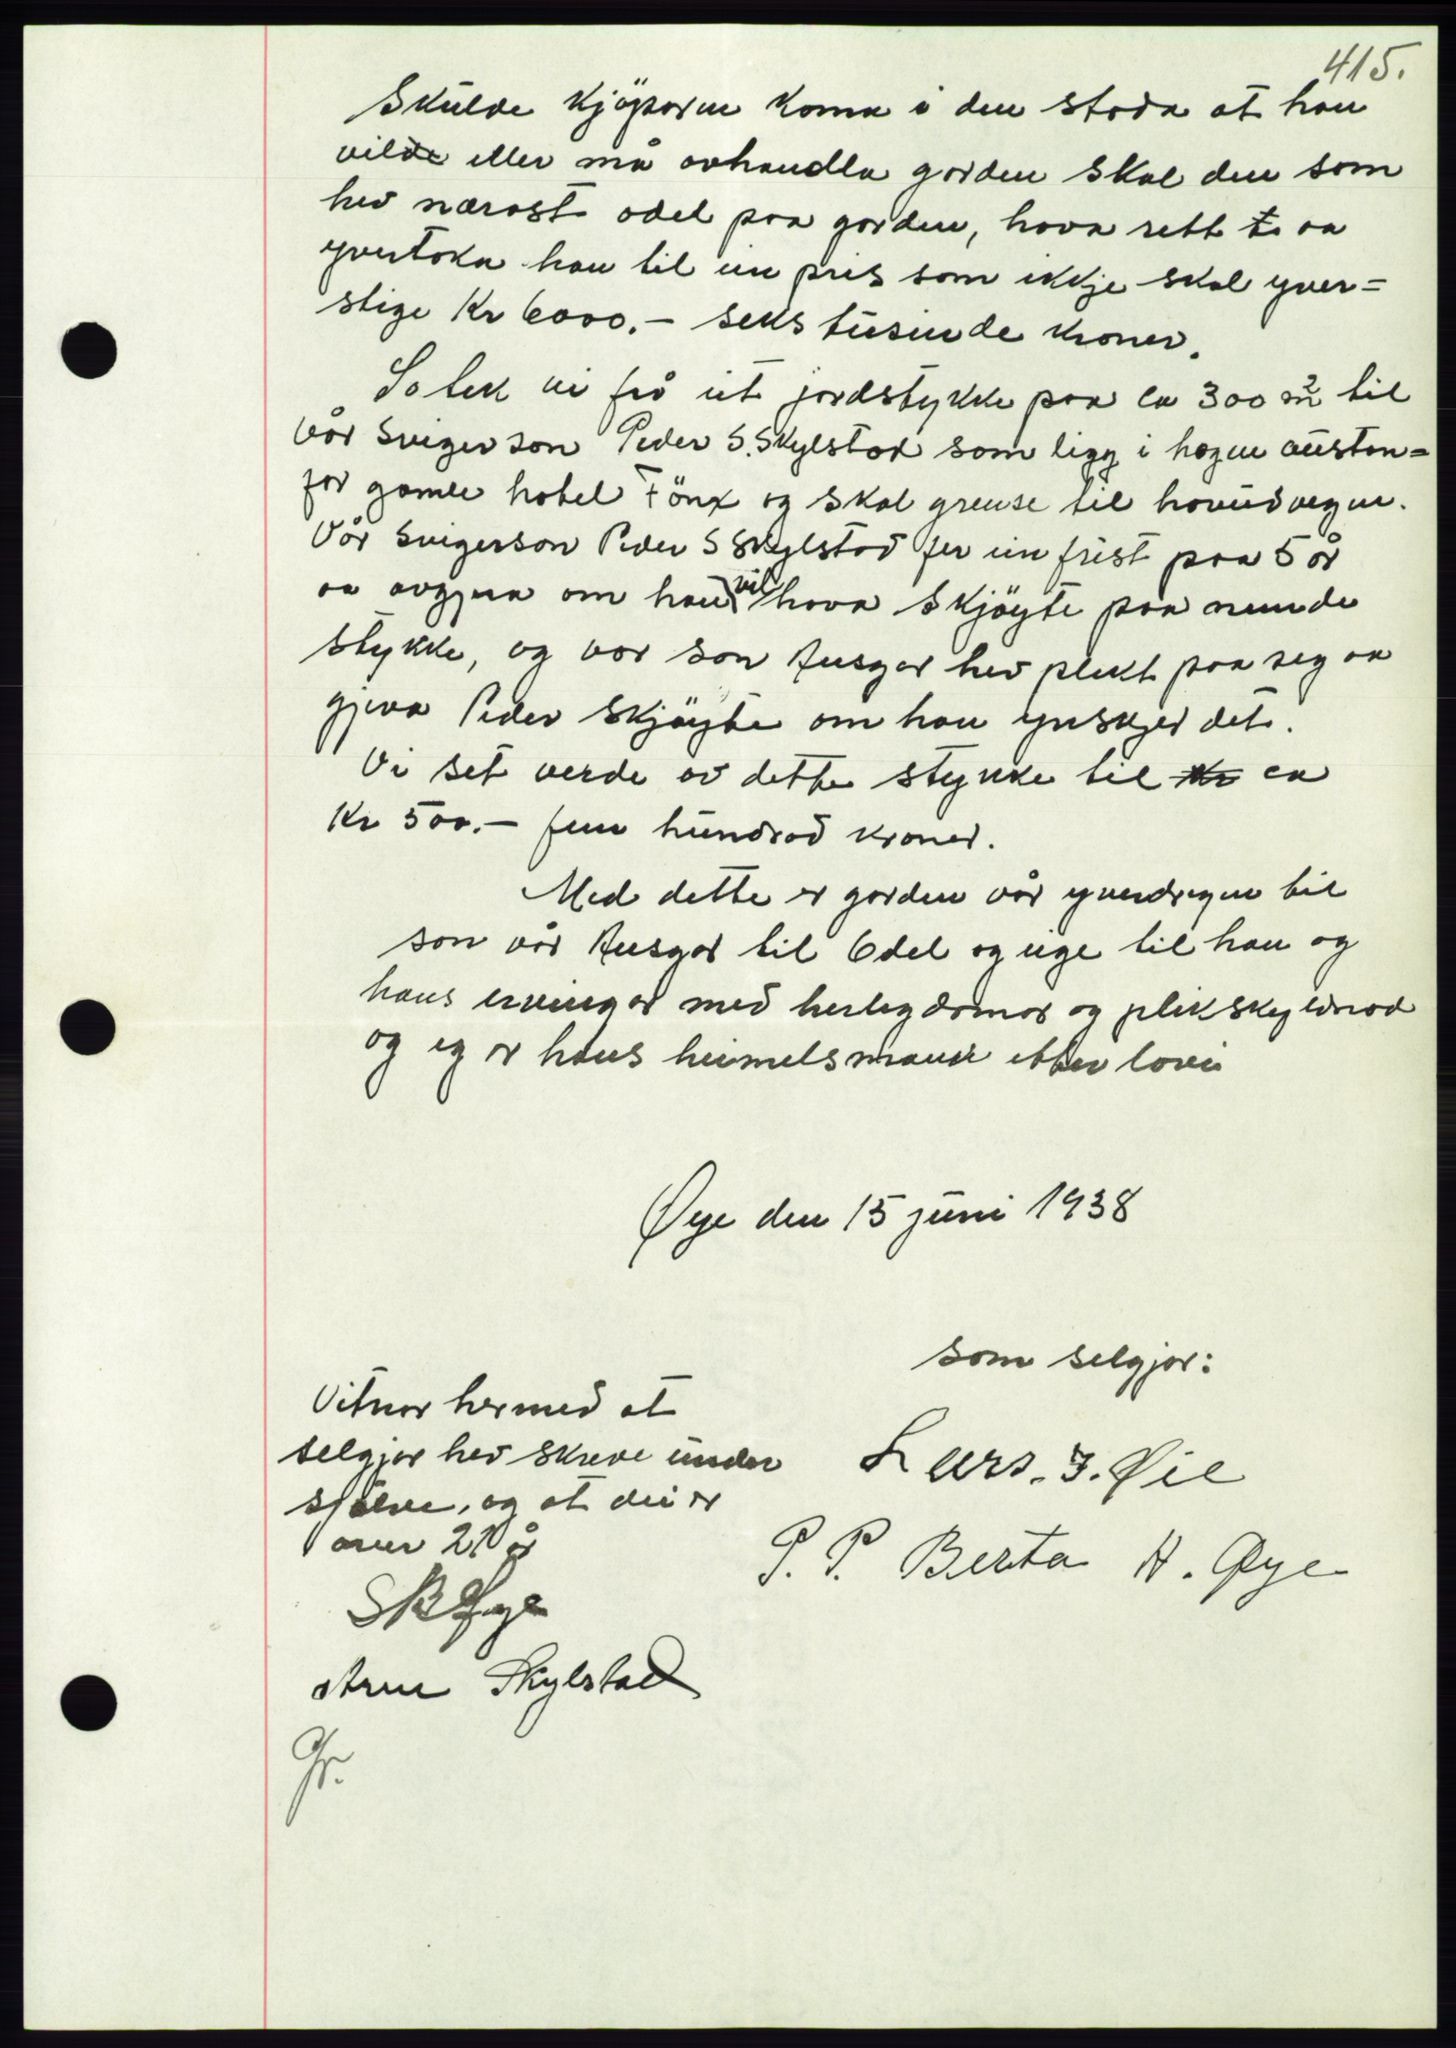 415.
Skulde kjöparen koma i den stoda at han
vilde eller må avhandla garden skal den som
hev nærast odel paa garden, hava rett t aa
yvertaka han til ein pris som ikkje skal yver=
stige Kr 6000.- seks tusinde kroner.
So tek vi frå eit jordstykke paa ca 300 m2 til
vår svigerson Peder S. Skylstad som ligg i hagen austan=
for gamle hotel Fönx og skal grense til hovudvegen.
Vår svigerson Peder S Skylstad fer ein frist paa 5 år
aa avgjera om han vil hava skjöyte paa nemnde
stykke, og vor son Ansgar hev plikt paa seg aa
gjeva Peder skjöyte om han ynskjer det.
Vi set verde av dette stykke til Kr ca
Kr 500.- fem hundrad kroner.
Med dette er garden vår yverdregen til
son vår Ansgar til Odel og eige til han og
hans ervingar med herlegdomar og plikskyldnad
og eg er hans heimelsmann etter lovi
Øye den 15 juni 1938
som seljar:
Vitnar hermed at
selgjar hev skreve under
sjölve, og at dei er
over 21 år
Lars. J. Øie
P. P. Berta H. Øye
S K Øye
Arne Skylstad
Gr.